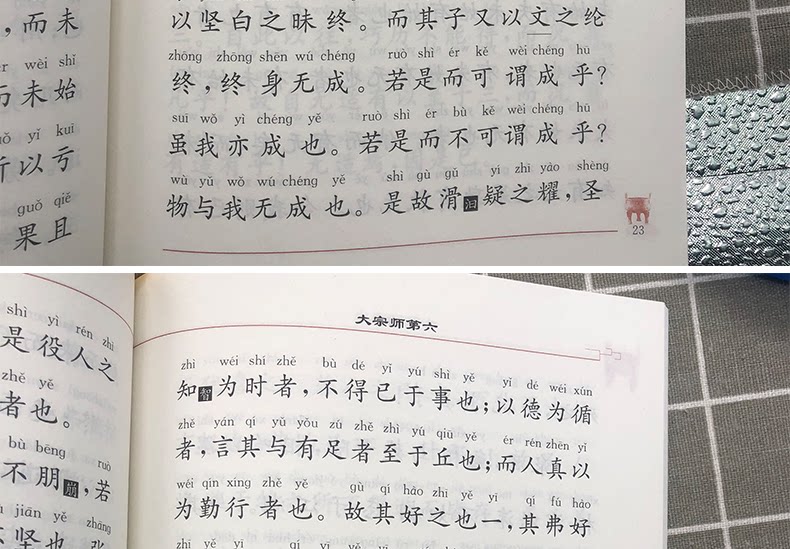 ，而未
wèi shǐ
而未始
yǐ kuī
所以亏
guǒ qiě
果且
以坚白之昧终。而其子又以文之纶
zhōng zhōng shēn wú chéng ruò shì ér kě wèi chéng hū
终，终身无成。若是而可谓成乎？
suī wǒ yì chéng yě ruò shì ér bù kě wèi chéng hū
虽我亦成也。若是而不可谓成乎？
wù yǔ wǒ wú chéng yě shì gù gǔ yí zhī yào shèng
物与我无成也。是故滑汩疑之耀，圣
23
shì yì rén zhī
是役人之
zhě yě
者也。
bù bēng ruò
不朋崩，若
jiān yě zhāng
坚也
大宗师第六
zhì wéi shí zhě bù dé yǐ yú shì yě yǐ dé wéi xún
知智为时者，不得已于事也；以德为循
zhě yán qí yǔ yǒu zú zhě zhì yú qiū yě ér rén zhēn yǐ
者，言其与有足者至于丘也；而人真以
wéi qín xíng zhě yě gù qí hào zhī yě yī qí fú hào
为勤行者也。故其好之也一，其弗好
zhī yě yī qí yī yě yī